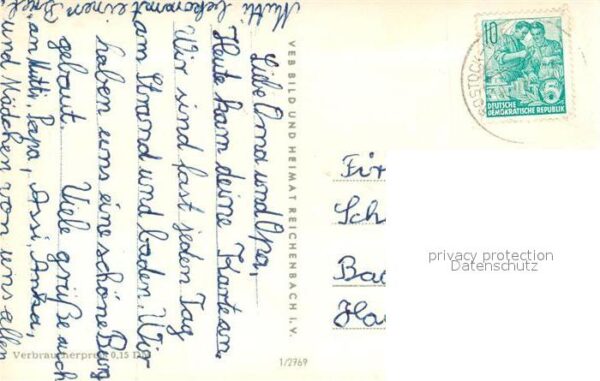 Liebe Oma und Opa,
Heute kam deine Karte an.
Wir sind fast jeden Tag
am Strand und baden. Wir
haben uns eine schöne Burg
gebaut. Viele grüße auch
an Mutti, Papa, Assi, Anka,
und Mädchen von uns allen
Mutti bekommt einen Brief.
VEB BILD UND HEIMAT REICHENBACH I. V.
10
5
DEUTSCHE
DEMOKRATISCHE REPUBLIK
ROSTOCK
Sch
Ba
Ha
privacy protection
Datenschutz
Verbraucherpreis 0,15 DM
1/2769